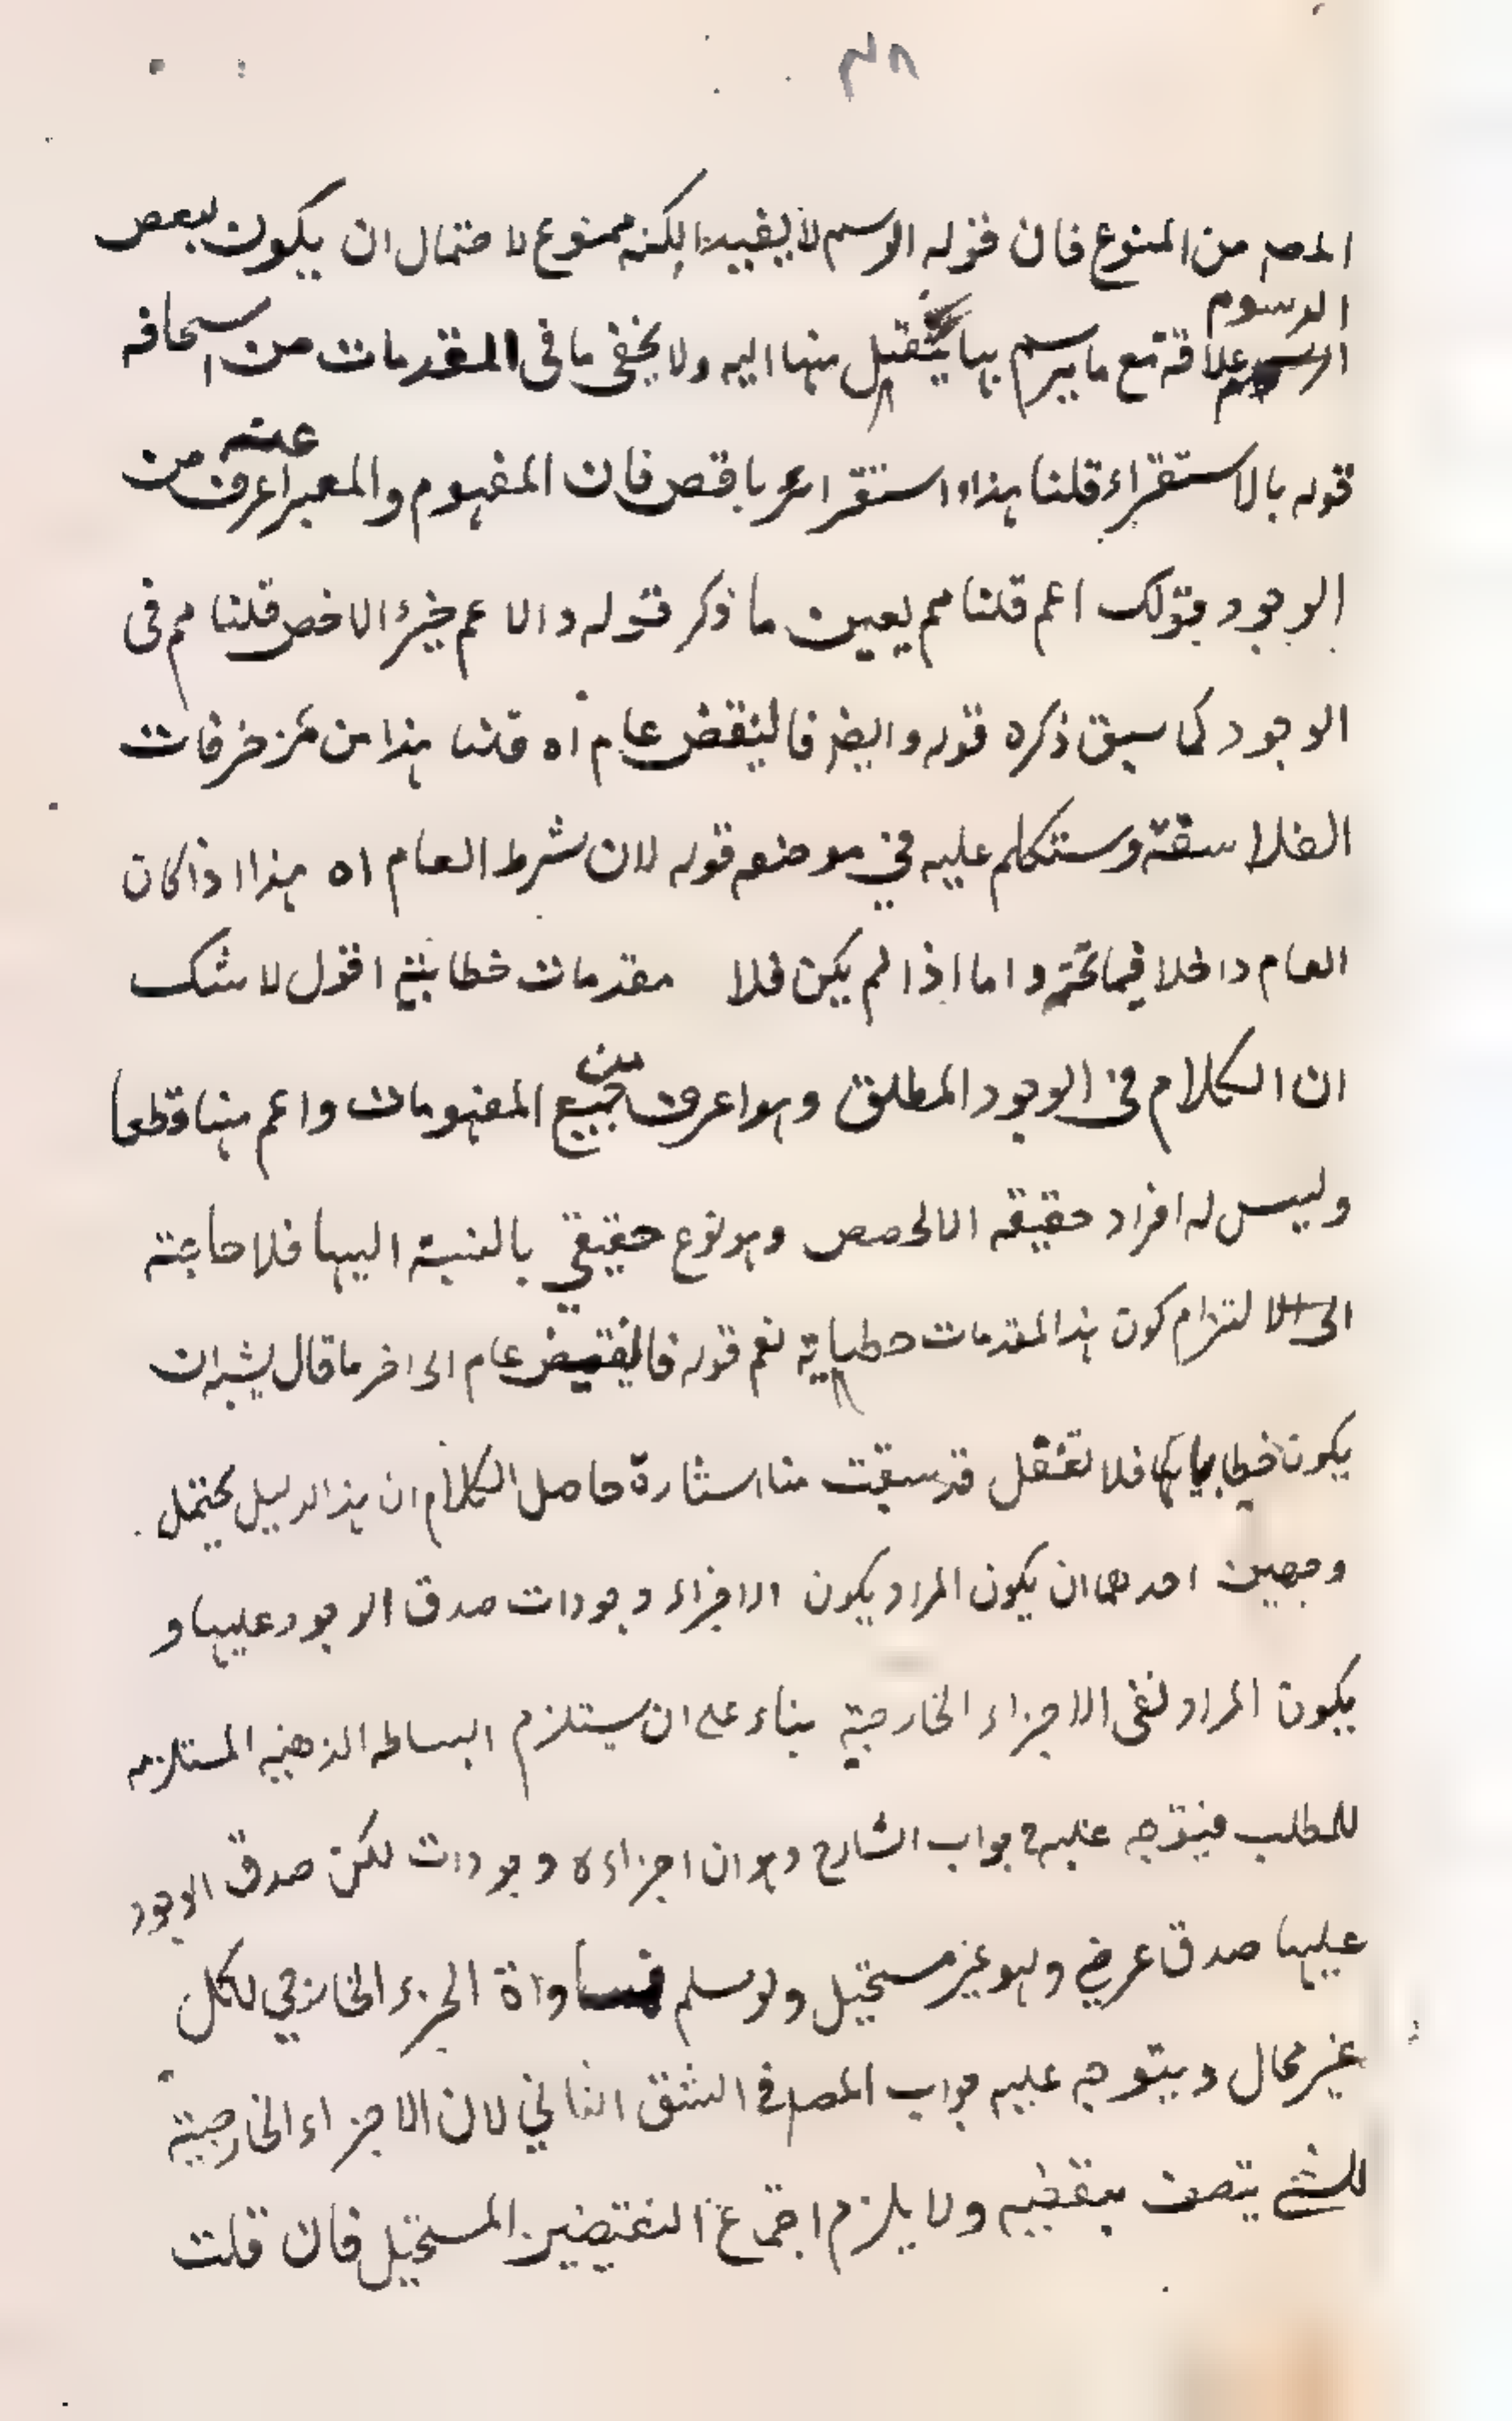 ٣٨
المصـ من المنوع فان قوله الرسم لا يفيد الكنه ممنوع لاحتمال ان يكون لبعض
الرسوم
علاقة مع ما يرسم بها ينتقل منها اليه ولا يخفى ما فى المقدمات من اسخافه
عنه
قوله بالاستقراء قلنا هذا استقراء ناقص فان المفهوم والمعبر اعرف من
الوجود بقولك اعم قلنا مم يعين ما ذكر قوله والاعم جزؤ الاخص قلنا مم فى
الوجود كما سبق ذكره قوله وايضـ فالنقض عام اه قلنا هذا من مزخرفات
الفلاسفة وسنتكلم عليه في موضعه قوله لان شرط العام اه هذا اذا كان
العام داخلا فيما تحته واما اذا لم يكن فلا مقدمات خطابية اقول لا شك
ان الكلام فى الوجود المطلق وهو اعرف من جميع المفهومات واعم منها قطعا
وليس له افراد حقيقه الا الحصص وهو نوع حقيقي بالنسبة اليها فلا حاجة
الى الالتزام كون هذا المقدمات خطابية نعم قوله فالنقيض عام الى اخر ما قال يشبه ان
يكون خطابيا فلا تغفل قد سبقت منا اشارة حاصل الكلام ان هذا الدليل يحتمل
وجهين احدهما ان يكون المراد يكون الاجزاء وجودات صدق الوجود عليها و
يكون المراد نفى الاجزاء الخارجية بناء على ان يستلزم البساطه الذهنيه المستلزمه
للمطلب فيتوجه عليه جواب الشارح وهو ان اجزاءه وجودات لكن صدق الوجود
عليها صدق عرضي وهو غير مستحيل ولو سلم فمساواة الجزء الخارجي لكل
غير محال ويتوجه عليه جواب المصـ فى الشق الثاني لان الاجزاء الخارجية
للشئ يتصف بنقيضه ولا يلزم اجتماع النقيضين المستحيل فان قلت